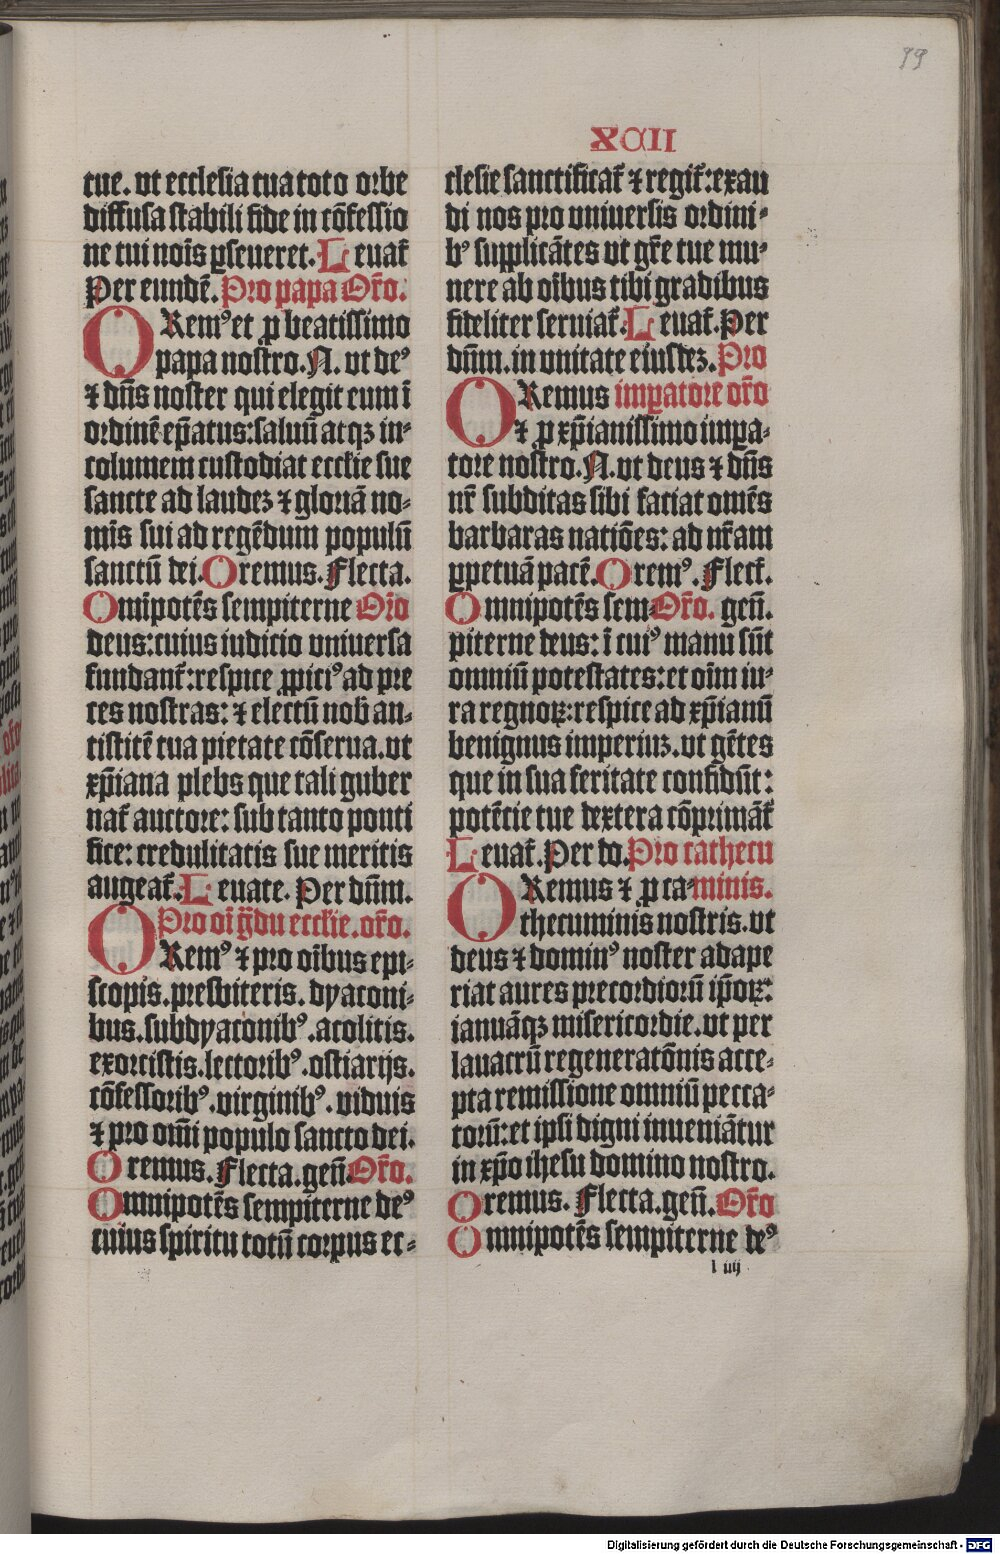 99
XCII
tue. vt ecclesia tua toto orbe
diffusa stabili fide in cōfessio
ne tui nois̄ ꝑseueret. Leuat᷑
Per eundē. Pro papa Or̄o.
ORemꝰ et ꝓ beatissimo
papa nostro. N. vt deꝰ
⁊ dn̄s noster qui elegit eum ī
ordinē ep̄atus: saluū atqꝫ in⸗
columem custodiat eccl̄ie sue
sancte ad laudeꝫ ⁊ gloriā no⸗
mīs sui ad regēdum populū
sanctū dei. Oremus. Flecta.
Omīpotēs sempiterne Or̄o
deus: cuius iudicio vniuersa
fundant᷑: respice ꝓpiciꝰ ad pre
ces nostras: ⁊ electū nob̄ an⸗
tistitē tua pietate cōserua. vt
xp̄iana plebs que tali guber
nat᷑ auctore: sub tanto ponti
fice: credulitatis sue meritis
augeat᷑. Leuate. Per dūm.
Pro oī g̈du eccl̄ie. or̄o.
ORemꝰ ⁊ pro oībus epi⸗
scopis. presbiteris. dyaconi⸗
bus. subdyaconibꝰ. acolitis.
exorcistis. lectoribꝰ. ostiarijs.
cōfessoribꝰ. virginibꝰ. viduis
⁊ pro omī populo sancto dei.
Oremus. Flecta. gen̄. Or̄o.
Omnipotēs sempiterne deꝰ
cuius spiritu totū corpus ec⸗
clesie sanctificat᷑ ⁊ regit᷑: exau
di nos pro vniuersis ordini⸗
bꝰ supplicātes vt gr̄e tue mu⸗
nere ab oībus tibi gradibus
fideliter seruiat᷑. Leuat᷑. Per
dūm. in vnitate eiusdeꝫ. Pro
ORemus impatore or̄o
⁊ ꝓ xp̄ianissimo imꝑa⸗
tore nostro. N. vt deus ⁊ dn̄s
nr̄ subditas sibi faciat omēs
barbaras natiōes: ad nr̄am
ꝑpetuā pacē. Oremꝰ. Flect᷑.
Omnipotēs sem⸗ Or̄o. gen̄.
piterne deus: ī cuiꝰ manu sūt
omniū potestates: et oīm iu⸗
ra regnoꝝ: respice ad xp̄ianū
benignus imperiuꝫ. vt gētes
que in sua feritate confidūt:
potētie tue dextera cōprimāt᷑
Leuat᷑. Per do. Pro cathecu
ORemus ⁊ ꝓ ca⸗ minis.
thecuminis nostris. vt
deus ⁊ dominꝰ noster adape
riat aures precordiorū ip̄oꝝ:
ianuāqꝫ misericordie. vt per
lauacrū regeneratōnis acce⸗
pta remissione omniū pecca⸗
torū: et ipsi digni inueniātur
in xp̄o ihesu domino nostro.
Oremus. Flecta. gen̄. Or̄o
Omnipotēs sempiterne deꝰ
l iiij
Digitalisierung gefördert durch die Deutsche Forschungsgemeinschaft - DFG